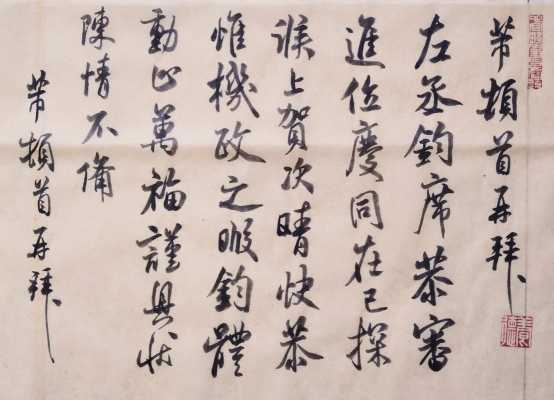 芾頓首再拜
左丞鈞席恭審
進位慶同在已探
候上賀次晴快恭
惟機政之暇鈞體
動止萬福謹具狀
陳情不備
芾頓首再拜